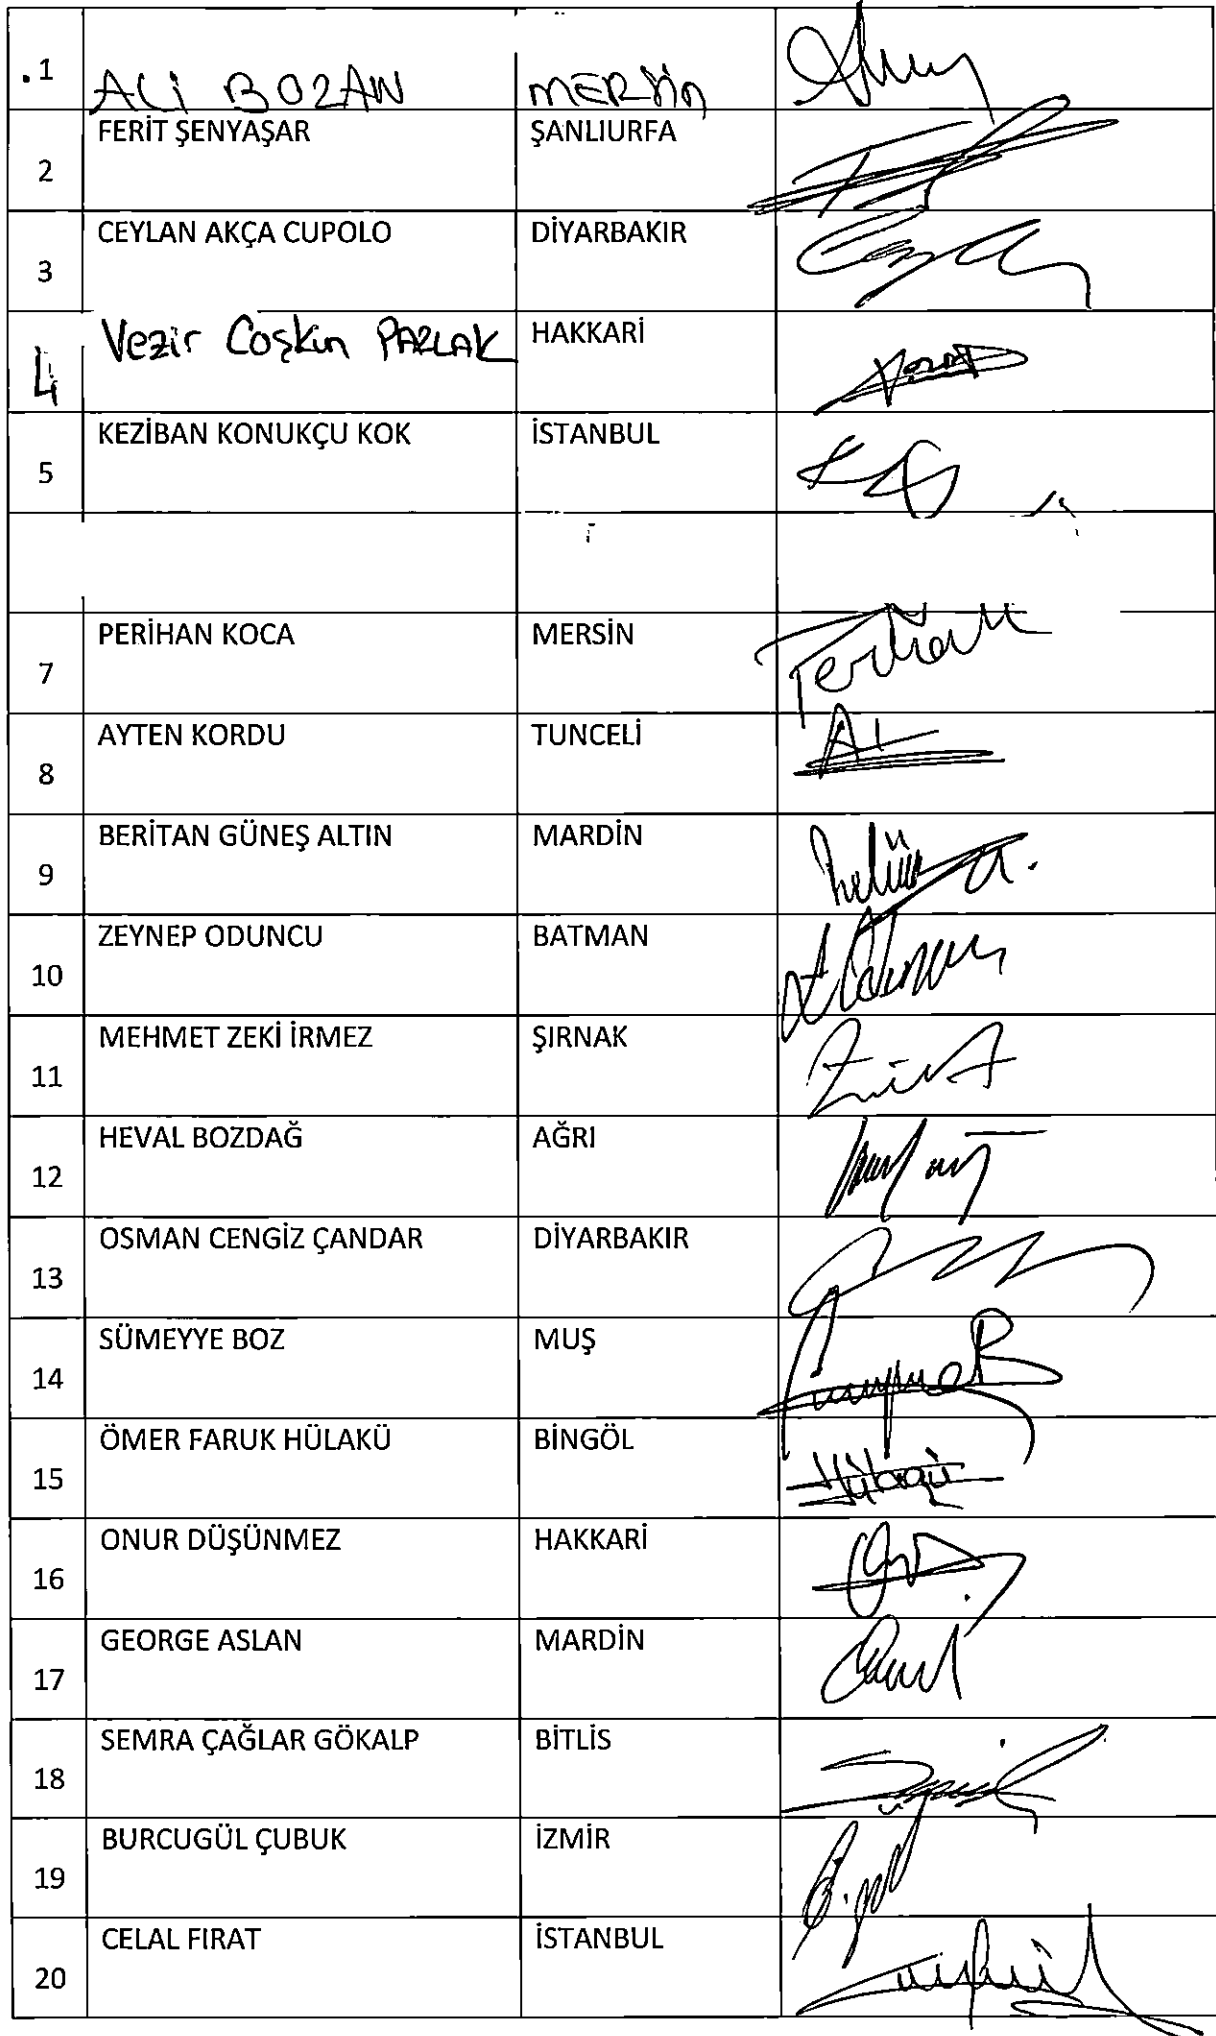 .1 ALİ BOZAN MERSİN
FERİT ŞENYAŞAR ŞANLIURFA
2
CEYLAN AKÇA CUPOLO DİYARBAKIR
3
Vezir Coşkun PARLAK HAKKARİ
4
KEZİBAN KONUKÇU KOK İSTANBUL
5
PERİHAN KOCA MERSİN
7
AYTEN KORDU TUNCELİ
8
BERİTAN GÜNEŞ ALTIN MARDİN
9
ZEYNEP ODUNCU BATMAN
10
MEHMET ZEKİ İRMEZ ŞIRNAK
11
HEVAL BOZDAĞ AĞRI
12
OSMAN CENGİZ ÇANDAR DİYARBAKIR
13
SÜMEYYE BOZ MUŞ
14
ÖMER FARUK HÜLAKÜ BİNGÖL
15
ONUR DÜŞÜNMEZ HAKKARİ
16
GEORGE ASLAN MARDİN
17
SEMRA ÇAĞLAR GÖKALP BİTLİS
18
BURCUGÜL ÇUBUK İZMİR
19
CELAL FIRAT İSTANBUL
20